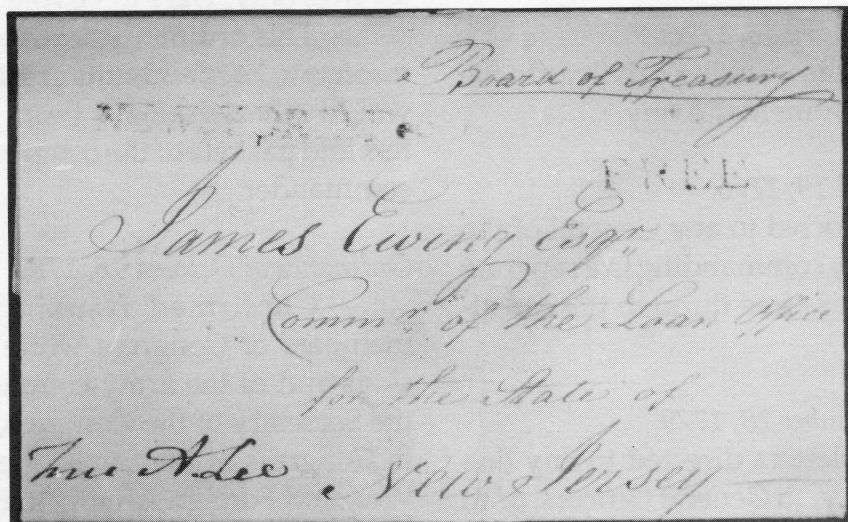 Board of Treasury
FREE
James Ewing Esqr
Commr of the Loan Office
for the State of
New Jersey
A. Lee